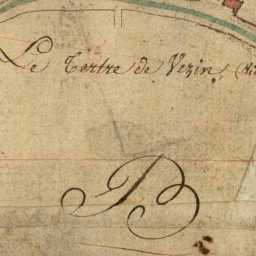 Le Tertre de Vezin
B